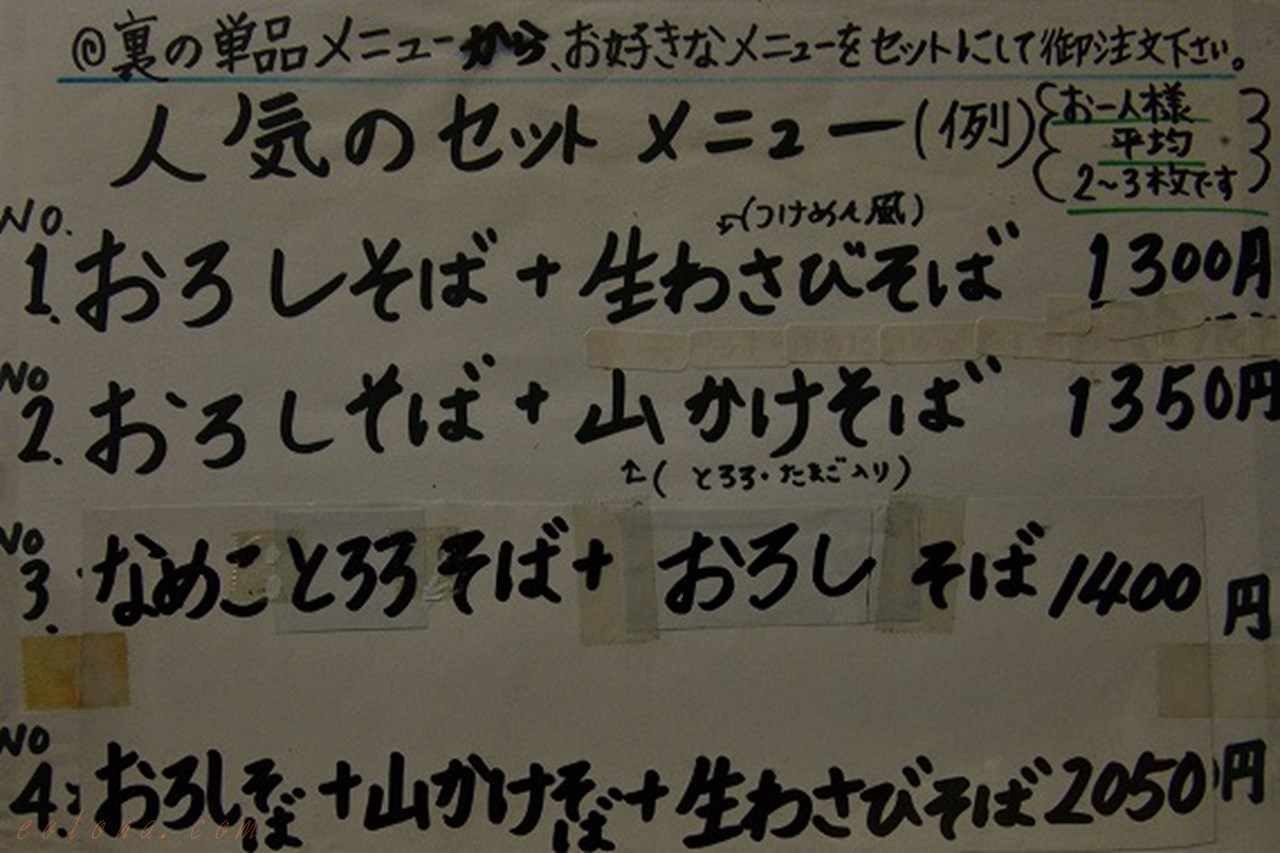 ◎裏の単品メニューから、お好きなメニューをセットにして御注文下さい。
人気のセットメニュー(例){お一人様
平均
2〜3枚です}
(つけめん風)
NO.1. おろしそば+生わさびそば 1300円
NO2. おろしそば+山かけそば 1350円
(とろろ・たまご入り)
NO3. なめことろろそば+おろしそば 1400円
NO4. おろしそば+山かけそば+生わさびそば 2050円